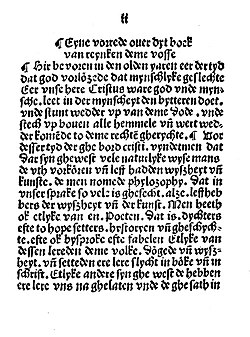 ¶ Eyne vorrede ouer dyt boek
van reynken deme vosse
¶ Hir be voren in den olden yaren eer der tyd
dat god vorlözede dat mynschlyke geslechte
Eer vnse here Cristus ware god vnde myn-
sche. leet in der mynscheyt den bytteren doet.
vnde stunt wedder vp van deme dode. vnde
stech vp bouen alle hemmele vñ wert wed-
der komēde to deme rechtē gherychte. ¶ Vor
desser tyd der ghe bord cristi. vyndetmen dat
dar syn ghewest vele naturlyke wyse mans
de vth vorkoren vñ leff hadden wyßheyt vñ
kunste. de men nomede phylosophy. Dat in
vnser sprake so vele is ghesecht. alze. leffheb
bers der wyßheyt vñ der kunst. Men heeth
ok etlyke van en. Poeten. Dat is. dychters
efte to hope setters. hystoryen vñ gheschych-
te. efte ok bysproke efte fabelen Etlyke van
dessen lereden deme volke. Dögede vñ wyß-
heyt. vñ setteden ere lere slycht in böke vñ in
schrift. Etlyke andere syn ghe west de hebben
ere lere vns na ghelaten vnde de ghesath in